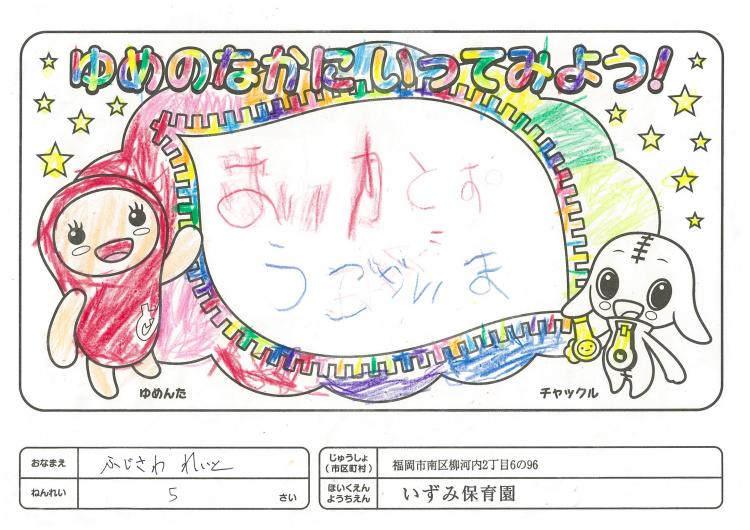 ゆめのなかにいってみよう!
まいかとお
ゆめんた
チャックル
おなまえ ふじさわ れいと
ねんれい 5 さい
じゅうしょ
(市区町村) 福岡市南区柳河内2丁目6の96
ほいくえん
ようちえん いずみ保育園